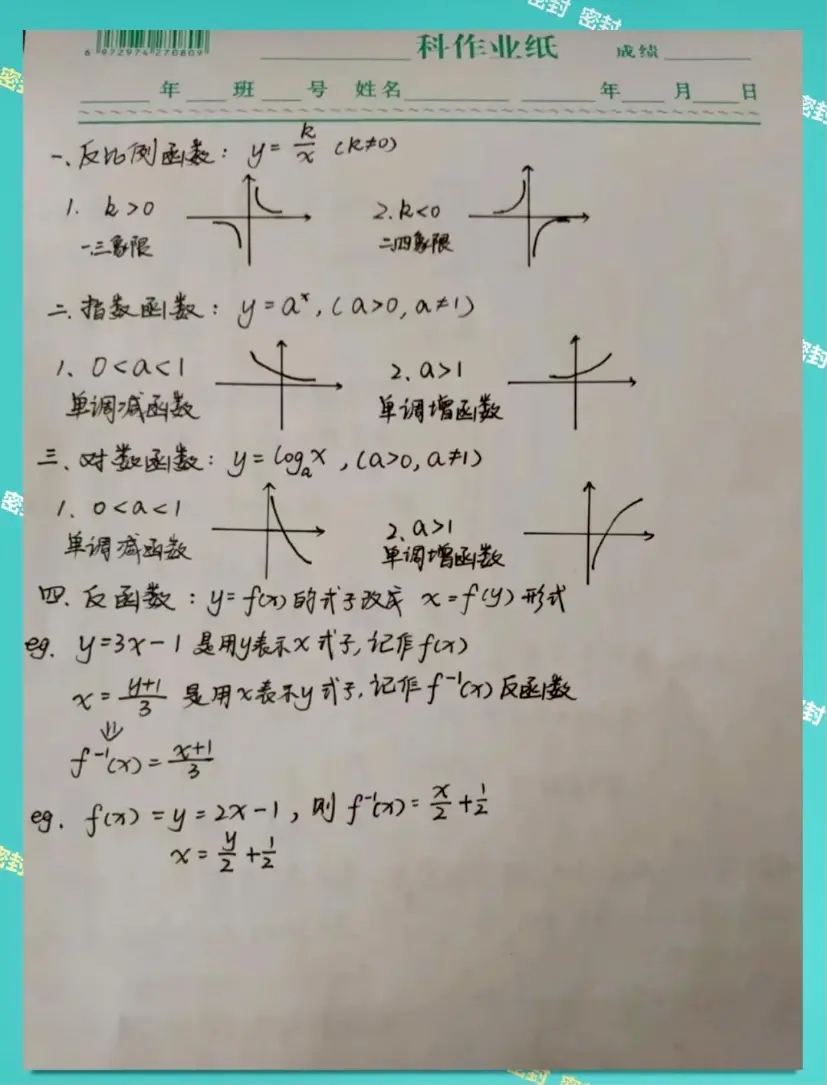 密封 密封
6 972974 270809
科作业纸 成绩
年 班 号 姓名 年 月 日
密封
密封
一、反比例函数: y = k/x (k≠0)
1. k>0 2. k<0
一三象限 二四象限
二、指数函数: y = aˣ, (a>0, a≠1)
密封
1、0<a<1 2、a>1
单调减函数 单调增函数
三、对数函数: y = logₐx , (a>0, a≠1)
密
1、0<a<1 2、a>1
单调减函数 单调增函数
四、反函数: y = f(x) 的式子改成 x = f(y) 形式
eg. y=3x-1 是用y表示x式子, 记作f(x)
x = y+1/3 是用x表示y式子, 记作f⁻¹(x) 反函数
封
⇓
f⁻¹(x) = x+1/3
eg. f(x) = y = 2x-1, 则 f⁻¹(x) = x/2 + 1/2
x = y/2 + 1/2
密封
密封 密封